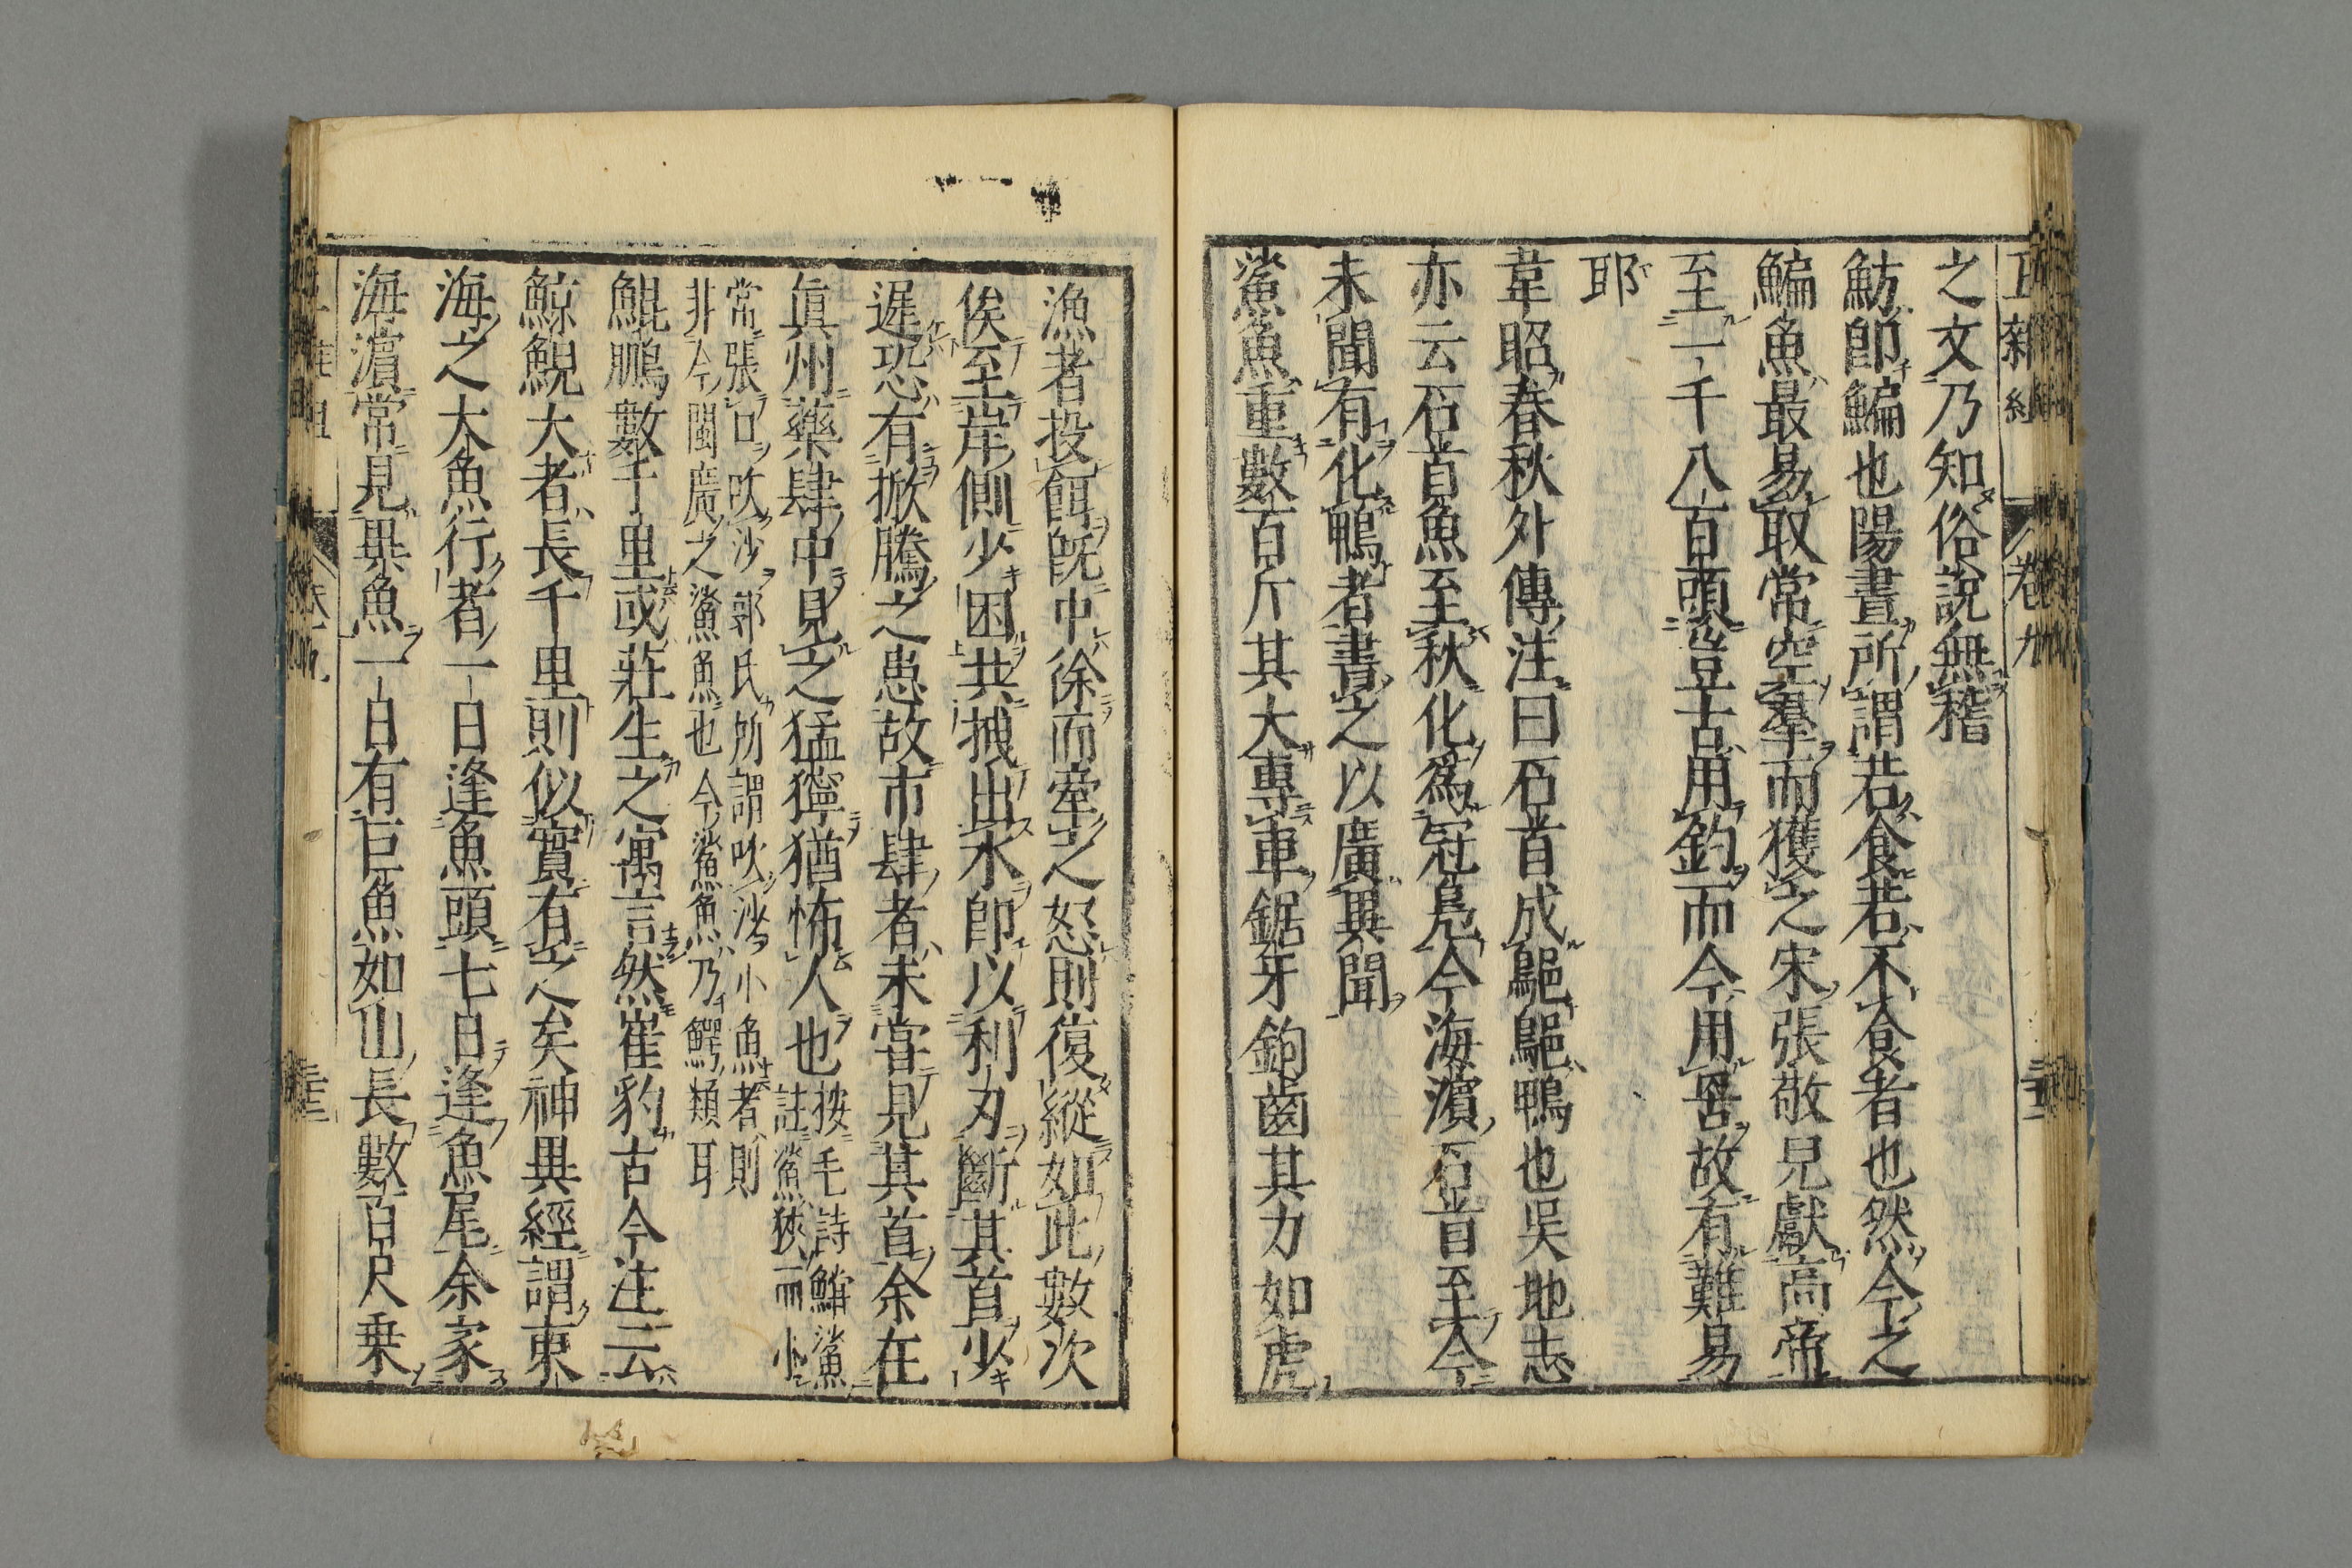 之文乃知俗說無稽
魴即鯿也陽晝所謂若食若不食者也然今之
鯿魚最易取常空羣而獲之宋張敬兒獻高帝
至一千八百頭豈古用釣而今用罟故有難易
耶
韋昭春秋外傳注曰石首成䳼䳼鴨也吳地志
亦云石首魚至秋化爲冠鳧今海濱石首至今
未聞有化鴨者書之以廣異聞
鯊魚重數百斤其大專車鋸牙鉤齒其力如虎
漁者投餌旣中徐而牽之怒則復縱如此數次
俟至岸側少困共拽出水即以利刃斷其首少
遲恐有掀騰之患故市肆者未嘗見其首余在
眞州藥肆中見之猛獰猶怖人也
按毛詩鱨鯊
註鯊狹而小
常張口吹沙郭氏所謂吹沙小魚者則
非今閩廣之鯊魚也今鯊魚乃鰐類耳
鯤鵬數千里或莊生之寓言然崔豹古今注云
鯨鯢大者長千里則似實有之矣神異經謂東
海之大魚行者一日逢魚頭七日逢魚尾余家
海濱常見異魚一日有巨魚如山長數百尺乗
卷九